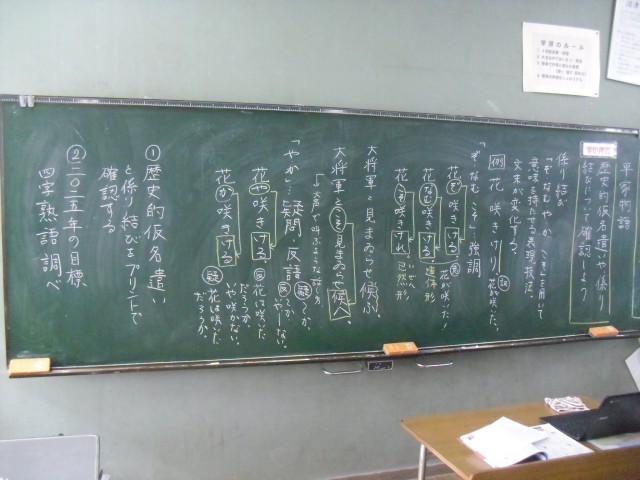 平家物語
歴史的仮名遣いや、係り
結びについて確認しよう
係り結び
「ぞなむやか こそ」を用いて
意味を持たせる表現技法。
文末が変化する。
例 花 咲きけり。 訳 花が咲いた。
「ぞ・なむ・こそ」…強調
花ぞ咲きける。 訳 花が咲いた!
花なむ咲きける。 連体形
花こそ咲きけれ。 已然形
大将軍と見まゐらせ候ふ。
大将軍とこそ見まゐらせ候へ。
「やか」…疑問・反語
花や咲きける 反 花は咲いた
だろうか
いや咲かない。
花か咲きける 疑 花は咲いた
だろうか。
① 歴史的仮名遣い
と係り結びをプリントで
確認する
② 二〇二五年の目標
四字熟語調べ
学習のルール